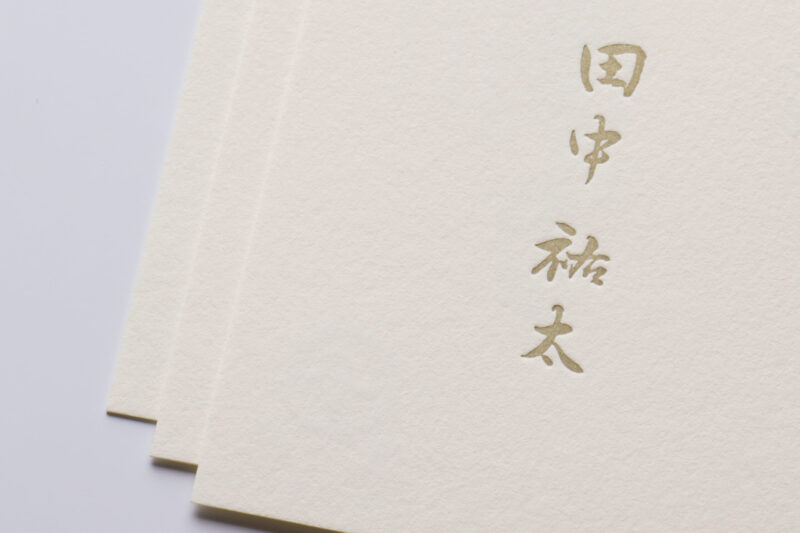 田中 祐太